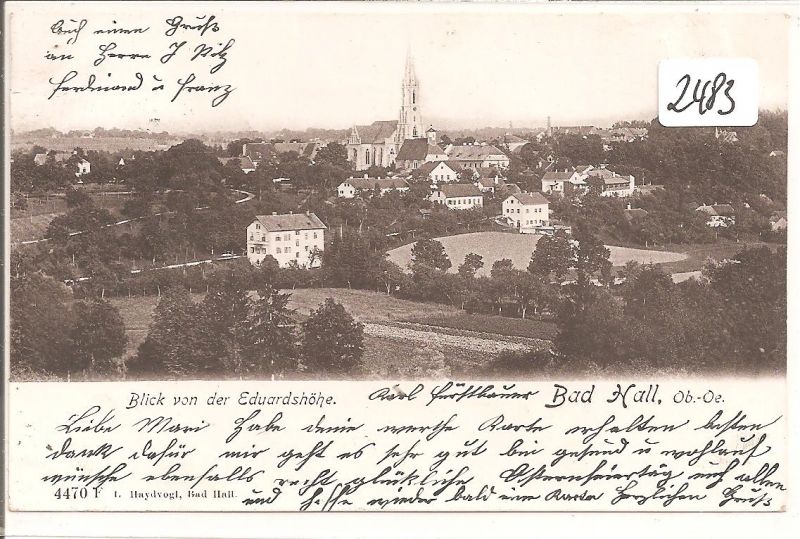 Auch einen Gruß
an Herrn J Pilz
Ferdinand u Franz
2483
Blick von der Eduardshöhe.
Karl Fürstbauer
Bad Hall, Ob.-Oe.
Liebe Mari Habe deine werthe Karte erhalten besten
dank dafür mir geht es sehr gut bei gesund u wohlauf
wünsche ebenfalls recht glückliche Osternfeiertäg euch allen
4470 F
I. Haydvogl, Bad Hall.
und hoffe wieder bald eine Karte Herzlichen Gruß